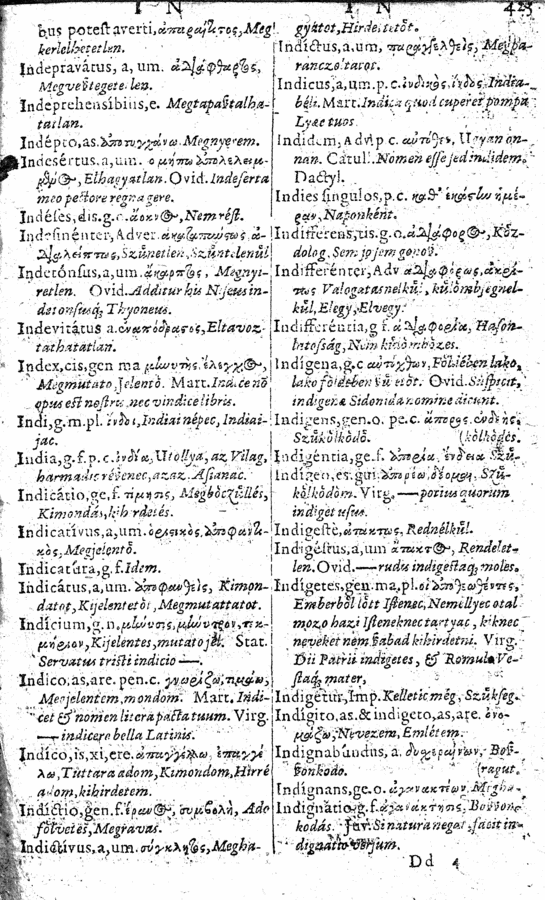 I N
bus potest averti, ἀπαραίτητος, Meg
kerlelhetetlen.
Indepravātus, a, um. ἀδιάφθαρτος,
Megvestegetelen.
Indeprehensibilis, e. Megtapastalha-
tatlan.
Indépto, as. ἀποτυγχάνω. Megnyerem.
Indesértus, a, um. ο μήπω ἀπολελειμ-
Elhagyatlan. Ovid. Indeserta
meo pectore regna gere.
Indéses, dis. g. o. ἄοκνος, Nem rést.
Indesinénter, Adver.
Szünetlen, Szüntelenül
Indetónsus, a, um. ἄκαρτος, Megnyi-
retlen. Ovid. Additur his Nyseus in-
detonsusq; Thyoneus.
Indevitātus a. Eltavoz-
tathatatlan.
Index, cis, gen ma μηνυτὴς, ἔλεγχος,
Megmutato, Jelentô. Mart. Indice nō
opus est nostris nec vindice libris.
Indi, g. m. pl. ἰνδοὶ, Indiai népec, Indiai-
jac.
India, g. f. p. c. ἰνδία, Utollya, az Vilag,
harmadic résenec, azaz. Asianac.
Indicātio, ge, f. τίμησις, Megböczüllés,
Kimondás, kihirdetés.
Indicatívus, a, um. ὁριστικὸς, ἀποφαντι-
κὸς, Megjelentô.
Indicatūra, g. f. Idem.
Indicātus, a, um. ἀποφανθεὶς, Kimon-
datot, Kijelentetöt, Megmutattatot.
Indícium, g. n. μήνυσις, μήνυτρον, τεκ-
μήριον, Kijelentes, mutato jel. Stat.
Servatus tristi indicio —.
Indico, as, are. pen. c. γνωρίζω,
Megjelentem, mondom. Mart. Indi-
cet & nomen litera pacta tuum. Virg.
— indicere bella Latinis.
Indíco, is, xi, ere. ἀπαγγέλλω, ἐπαγγέ
λω, Tuttara adom, Kimondom, Hirré
adom, kihirdetem.
Indíctio, gen. f. ἔρανος, συμβολὴ, Ado
fölvetés, Megravas.
Indictívus, a, um. σύγκλητος, Megha-
I N 423
gyatot, Hirdetetöt.
Indíctus, a, um, παραγγελθεὶς, Megpa-
ranczoltatot.
Indicus, a, um. p. c. ἰνδικὸς, ἰνδὸς, India-
béli. Mart. Indica quod cuperet pompa
Lyæe tuos.
Indidem, Adv. p c. αὐτόθεν, Ugyan on-
nan. Catul. Nomen esse sed indidem.
Dactyl.
Indies síngulos, p. c. καθ' ἑκάστην ἡμέ-
ραν, Naponként.
Indífferens, tis. g. o. ἀδιάφορος, Köz-
dolog, Sem jo sem gonosz.
Indifferénter, Adv ἀδιαφόρως, ἀκρί-
τως Valogatasnelkül, külömbsegnel-
kül, Elegy, Elvegy.
Indifferéntia, g f. ἀδιαφορία, Hason-
latosság, Nem külömbözes.
Indígena, g. c αὐτόχθων, Földében lako,
lako földeben születöt. Ovid. Suspicit,
indigenæ Sidonida nomine dicunt.
Indigens, gen. o. pe. c. ἄπορος, ἐνδεὴς,
Szükölködô. (kölködés.
Indigéntia, ge. f. ἀπορία, ἔνδεια Szü-
Indigeo, es. gui. ἀπορέω, δέομαι, Szü-
kölködöm. Virg, — potius quorum
indiget usus.
Indigestè, ἀτάκτως, Rednélkül.
Indigéstus, a, um ἄτακτος, Rendelet-
len. Ovid. — rudis indigestaq; moles.
Indígetes, gen. ma, pl. οἱ ἀποθεωθέντες,
Emberböl lött Istenec, Nemellyec otal
mazo hazi Isteneknec tartyac, kiknec
neveket nem szabad kihirdetni. Virg.
Dii Patrii indigetes, & Romule Ve-
staq; mater,
Indigétur, Imp. Kelletic még, Szükseg.
Indígito, as. & indigeto, as, are. ὀνο-
μάζω, Nevezem, Emlétem.
Indignabúndus, a. δυχεραίνων, Bosz-
szonkodo. (ragut.
Indígnans, ge. o. ἀγανακτέων, Megha-
Indignātio, g. f. ἀγανάκτησις, Boszszon-
kodás. Juv. Si natura negat, facit in-
dignatio versum.
Dd 4